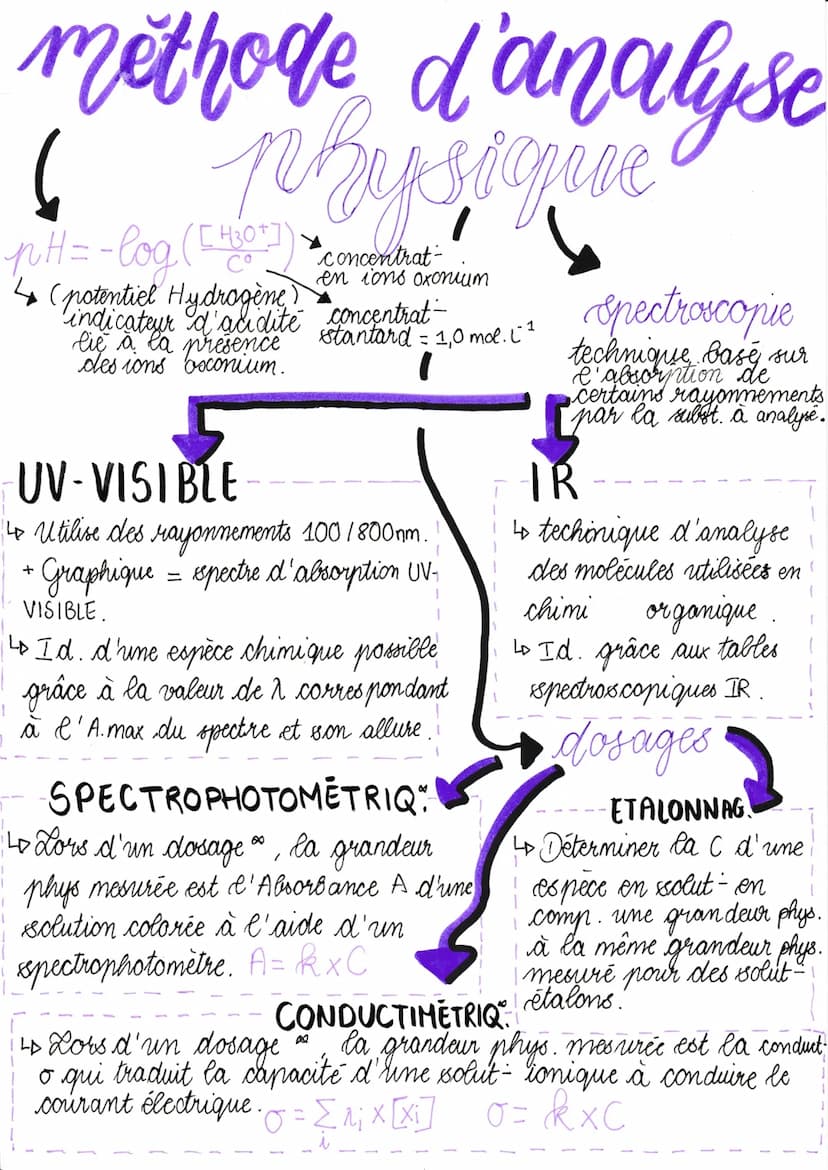 méthode d'analyse
physique
pH = -log([H3O+]/C°)
concentrat-
en ions oxonium
concentrat-
stantard = 1,0 mol.L-1
(potentiel Hydrogène)
indicateur d'acidité
lié à la présence
des ions boconium.
spectroscopie
technique basé sur
l'absorption de
certains rayonnements
par la subst. à analysé.
UV-VISIBLE
↳ Utilise des rayonnements 100/800nm.
+ Graphique = spectre d'absorption UV-
VISIBLE.
↳ Id. d'une espèce chimique possible
grâce à la valeur de λ correspondant
à l'A.max du spectre et son allure.
IR
↳ techinique d'analyse
des molécules utilisées en
chimi organique.
↳ Id. grâce aux tables
spectroscopiques IR.
dosages
SPECTROPHOTOMÉTRIQ.
↳ Lors d'un dosage ∞, la grandeur
phys mesurée est l'Absorbance A d'une
solution colorée à l'aide d'un
spectrophotomètre. A = k x C
ETALONNAG.
↳ Déterminer la C d'une
espèce en solut- en
comp. une grandeur phys.
à la même grandeur phys.
mesuré pour des solut-
étalons.
CONDUCTIMÉTRIQ.
↳ Lors d'un dosage ∞, la grandeur phys. mesurée est la conduct-
σ qui traduit la capacité d'une solut- ionique à conduire le
courant électrique. σ = Σi λi x [xi] σ = k x C